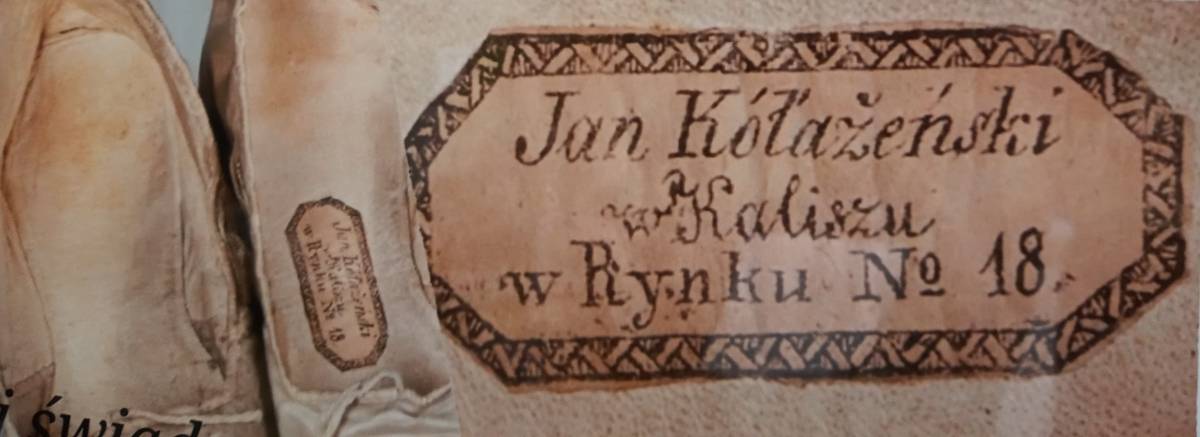 Jan Kółażeński
w Kaliszu
w Rynku Nº 18.
Jan Kółażeński
w Kaliszu
w Rynku Nº 18
i świad